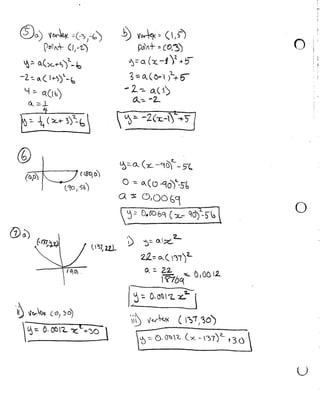 ⑤ a) vertex = (-3,-6)
Point (1,-2)
y = a(x+3)²-6
-2 = a(1+3)²-6
4 = a(16)
a = 1/4
y = 1/4 (x+3)²-6
b) vertex = (1,5)
point = (0,3)
y = a(x-1)²+5
3 = a(0-1)²+5
-2 = a(1)
a = -2
y = -2(x-1)²+5
⑥
(0,0)
(180,0)
(90,56)
y = a(x-90)²-56
0 = a(0-90)²-56
a = 0.0069
y = 0.0069(x-90)²-56
⑦ a)
(137,22)
(0,0)
i) y = ax²
22 = a(137)²
a = 22/18769 = 0.0012
y = 0.0012x²
ii) vertex (0,30)
y = 0.0012x²+30
iii) vertex (137,30)
y = 0.0012(x-137)²+30